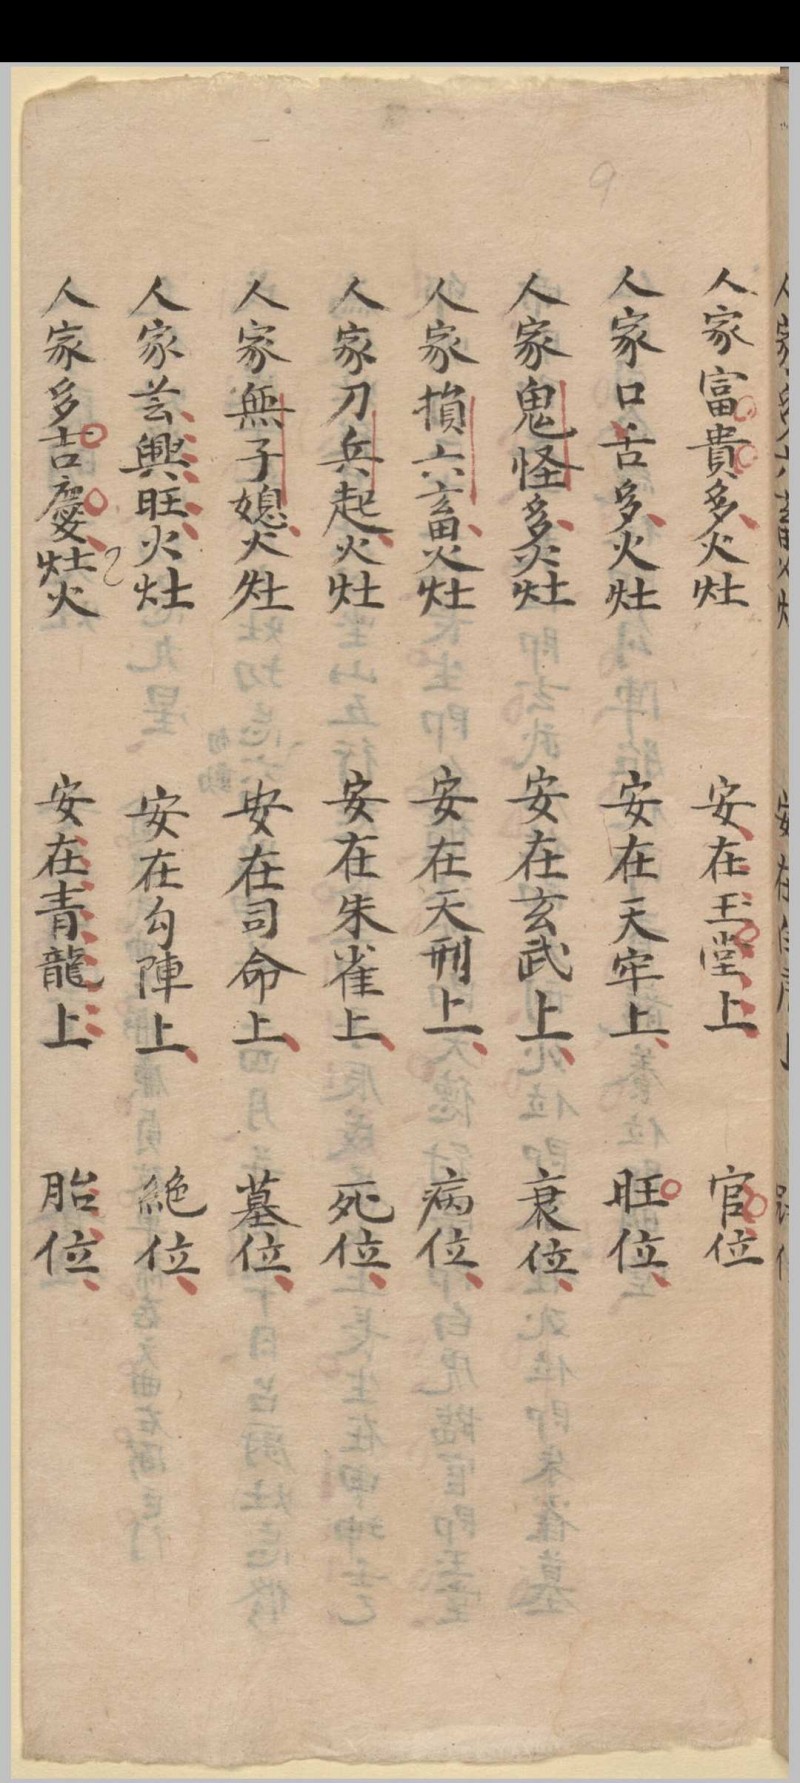 人家富貴多火灶 安在玉堂上 官位
人家口舌多火灶 安在天牢上 旺位
人家鬼怪多火灶 安在玄武上 衰位
人家損六畜火灶 安在天刑上 病位
人家刀兵起火灶 安在朱雀上 死位
人家無子媳火灶 安在司命上 墓位
人家興旺火灶 安在勾陣上 絶位
人家多吉慶灶火 安在青龍上 胎位
9